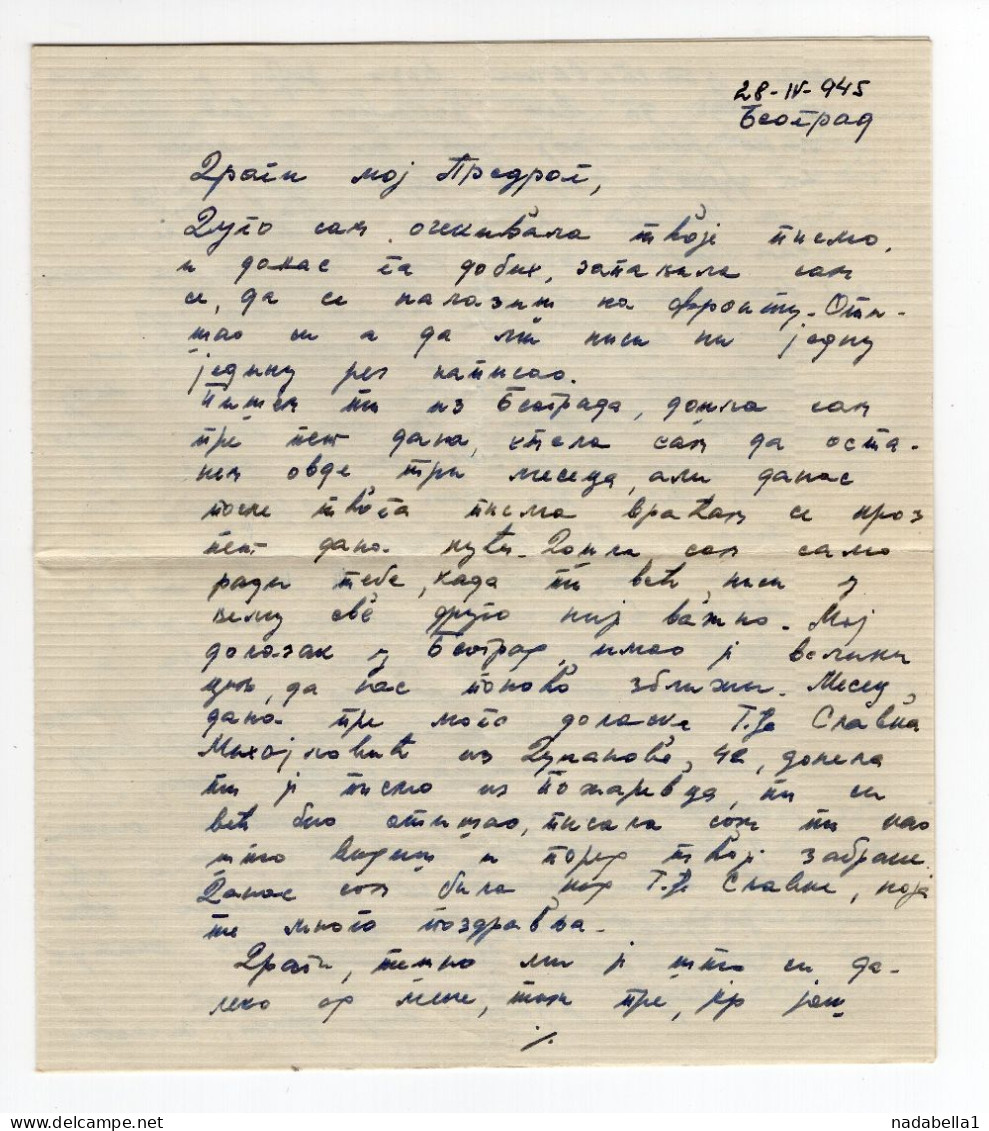 28-IV-945
Београд
Драги мој Предраг,
Дуго сам очекивала твоје писмо,
и данас га добих, запањила сам
се, да се налазиш на фронту. Оти-
шао си а да ми ниси ни једну
једину реч написао.
Пишем ти из Београда, дошла сам
пре пет дана, хтела сам да оста-
нем овде, три месеца, али данас
после твога писма враћам се кроз
пет дана кући. Дошла сам само
ради тебе, када ти већ ниси у
њему све друго није важно. Мој
долазак у Београд, имао је велики
циљ, да нас поново зближи. Месец
дана пре мога доласка Г.ђа Славка
Михајловић из Душанове, 42, донела
ти је писмо из Пожаревца, ти си
већ био отишао, писала сам ти као
што видиш и поред твоје забране.
Данас сам била код Г.ђе Славке, која
те много поздравља.
Драги, тешко ми је што си да-
леко од мене, тим пре, јер још
./.
nadabella1